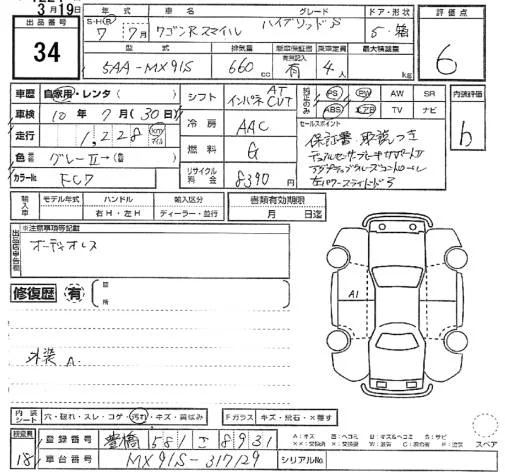 3月19日
出品番号
34
年式 車名 グレード ドア・形状
S・H・R 7 7月 ワゴンRスマイル ハイブリッドS 5・箱
型式 排気量 新車保証書 乗車定員 最大積載量
有無記入
5AA-MX91S 660cc 有 4人 kg
評価点
6
車歴 自家用・レンタ( )
車検 10年7月(30日)
走行 1,228 km マイル
色 グレーII→( )
カラーNo. FC7
シフト インパネ AT CVT
冷房 AAC
燃料 G
リサイクル料金 8390円
PS PW AW SR
ABS エアB TV ナビ
セールスポイント
保証書、取説つき
デュアルセンサーブレーキサポートII
アダプティブクルーズコントロール
左パワースライドドア
内装評価
b
輸入車 モデル年式 ハンドル 輸入区分
年 右H・左H ディーラー・並行
書類有効期限
月 日迄
※注意事項等記載
オーディオレス
修復歴 有
箇所
外装 A
A1
内装シート 穴・破れ・スレ・コゲ・汚れ・キズ・黄ばみ
Fガラス キズ・飛石・×ヒ
検査員
18
登録番号 豊橋 581 さ 8931
車台番号 MX91S-317129
シリアルNo.
A:キズ
スペア